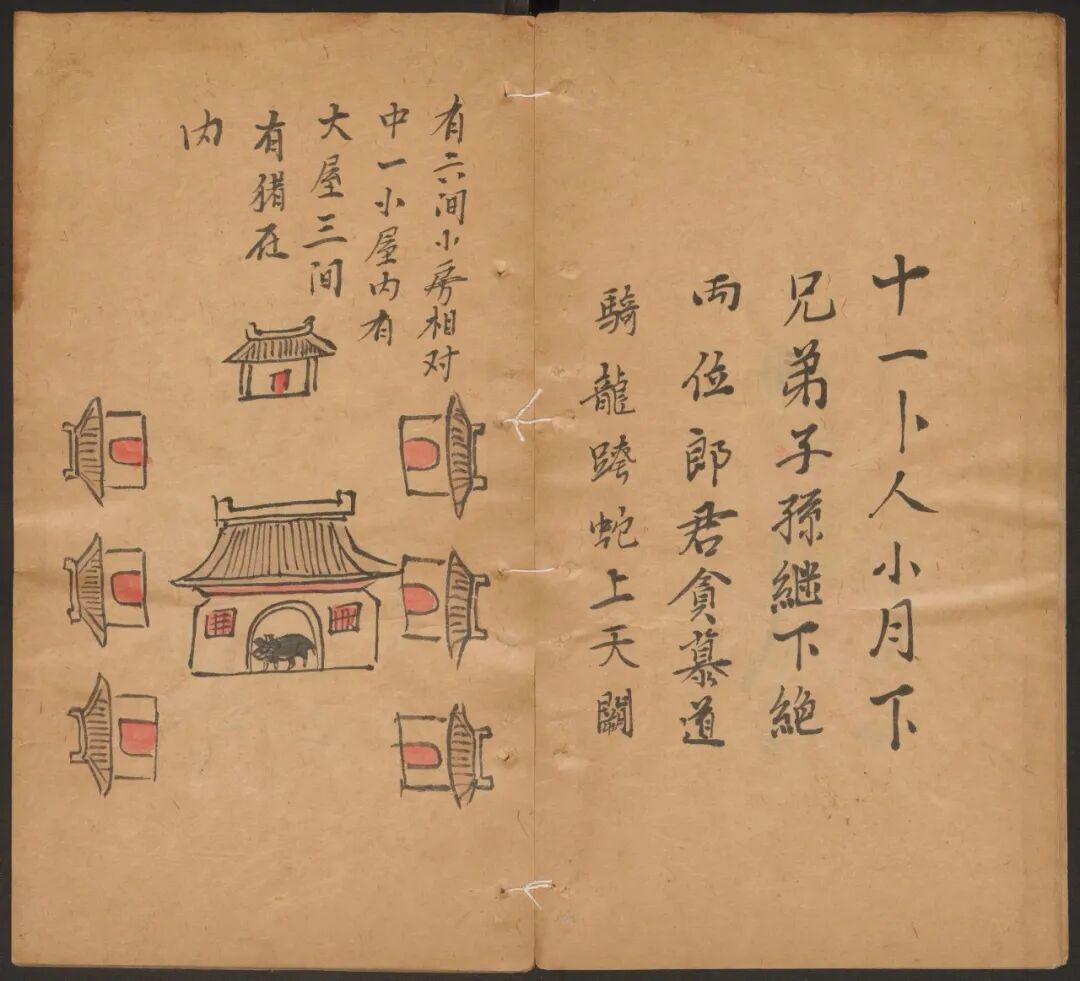 十一卜人小月下
兄弟子孫継下絶
両位郎君貪慕道
騎龍跨蛇上天闕
有六间小房相对
中一小屋内有
大屋三间
有猪在
内